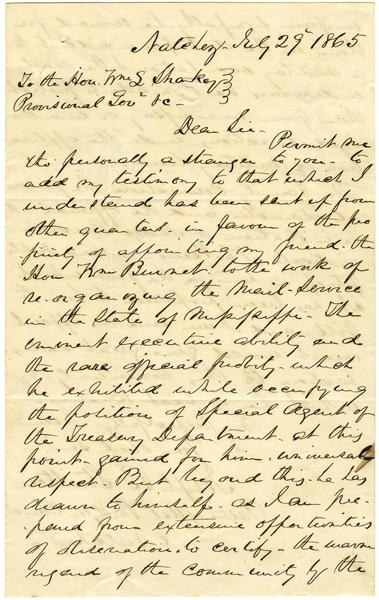 Natchez, July 29 1865
To the Hon. Wm L Sharkey
Provisional Govr &c -
Dear Sir -
Permit me
tho personally a stranger to you - to
add my testimony to that which I
understand has been sent up from
other quarters - in favour of the pro
priety of appointing my friend - the
Hon Wm Burnet - to the work of
re-organizing the Mail-Service
in the State of Mississippi - The
eminent executive ability and
the rare official probity - which
he exhibited while occupying
the position of Special Agent of
the Treasury Department - at this
point - gained for him - universal
respect. But beyond this - he has
drawn to himself - as I am pre
-pared from extensive opportunities
of observation, to certify - the warm
regard of the Community by the